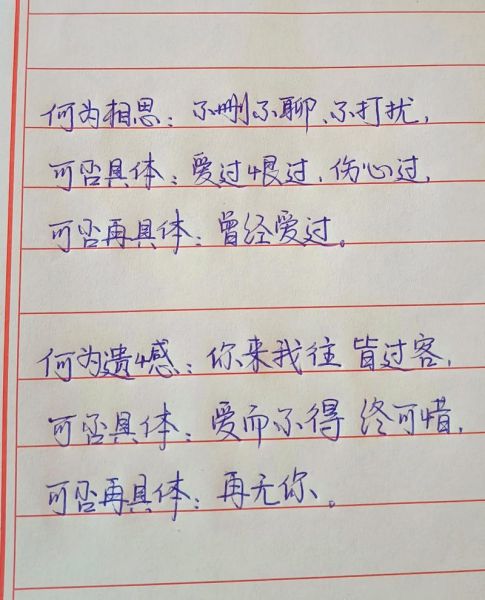 何为相思：不删不聊、不打扰，
可否具体：爱过恨过，伤心过，
可否再具体：曾经爱过。
何为遗憾：你来我往 皆过客，
可否具体：爱而不得 终可惜，
可否再具体：再无你、。